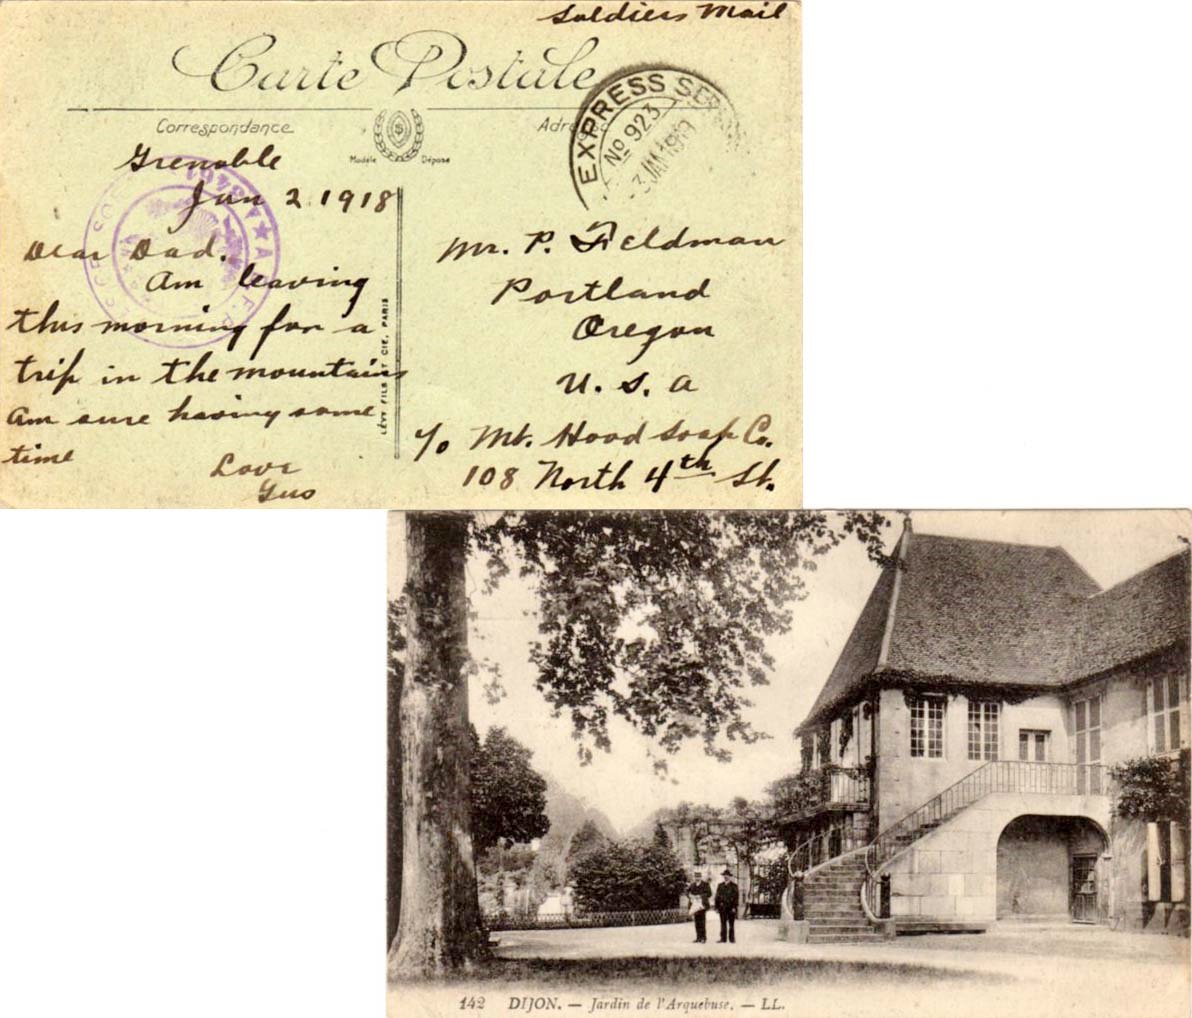 Soldiers Mail
Carte Postale
Correspondance
Adresse
Modèle Déposé
EXPRESS SER
No 923
3 JAN 1919
A.E.F.
Grenoble
Jan 2 1918
Dear Dad.
Am leaving
this morning for a
trip in the mountains
Am sure having some
time
Love
Gus
LÉVY FILS ET CIE, PARIS
Mr. P. Feldman
Portland
Oregon
U. S. A
c/o Mt. Hood Soap Co.
108 North 4th St.
142 DIJON. — Jardin de l'Arquebuse. — LL.